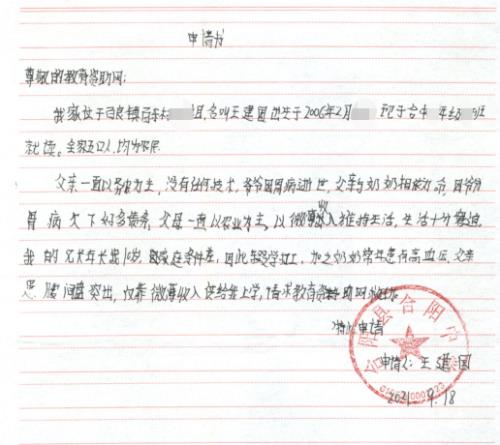 申请书
尊敬的教育资助网：
我家位于百良镇 组，名叫王建国出生于2006年2月 现于合中 年级 班
就读。全家五口人，均为农民。
父亲一直以务农为主，没有任何技术，爷爷因胃病逝世，父亲与奶奶相依为命，因爷爷
胃病欠下好多债务，父母一直以农业为主，以微薄收入维持生活，生活十分窘迫，
我的兄长年长我 岁，家庭条件差，因此辍学打工，加之奶奶常年患有高血压，父亲
患腰间盘突出，仅靠微薄收入供给我上学，请求教育资助网
特此申请
申请人：王建国
2021.9.18
合阳县合阳中学